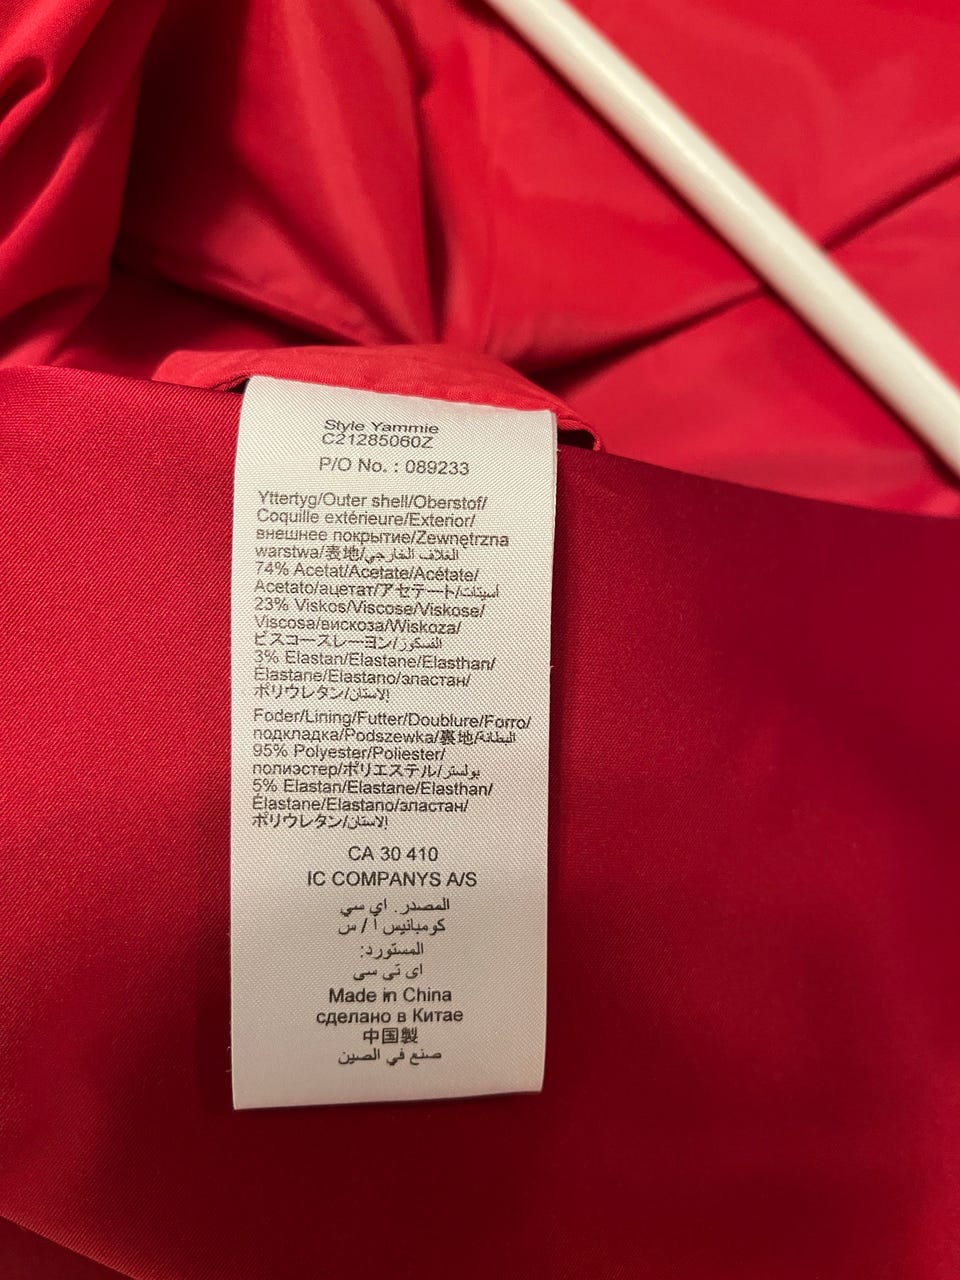 Style Yammie
C21285060Z
P/O No. : 089233
Yttertyg/Outer shell/Oberstof/
Coquille extérieure/Exterior/
внешнее покрытие/Zewnętrzna
warstwa/表地/الغلاف الخارجي
74% Acetat/Acetate/Acétate/
Acetato/ацетат/アセテート/أسيتات
23% Viskos/Viscose/Viskose/
Viscosa/вискоза/Wiskoza/
ビスコースレーヨン/الفسكوز
3% Elastan/Elastane/Elasthan/
Élastane/Elastano/эластан/
ポリウレタン/الاستان
Foder/Lining/Futter/Doublure/Forro/
подкладка/Podszewka/裏地/البطانة
95% Polyester/Poliester/
полиэстер/ポリエステル/بولستر
5% Elastan/Elastane/Elasthan/
Élastane/Elastano/эластан/
ポリウレタン/الاستان
CA 30 410
IC COMPANYS A/S
المصدر. اي سي
كومبانيس أ / س
المستورد:
اى تى سى
Made in China
сделано в Китае
中国製
صنع في الصين